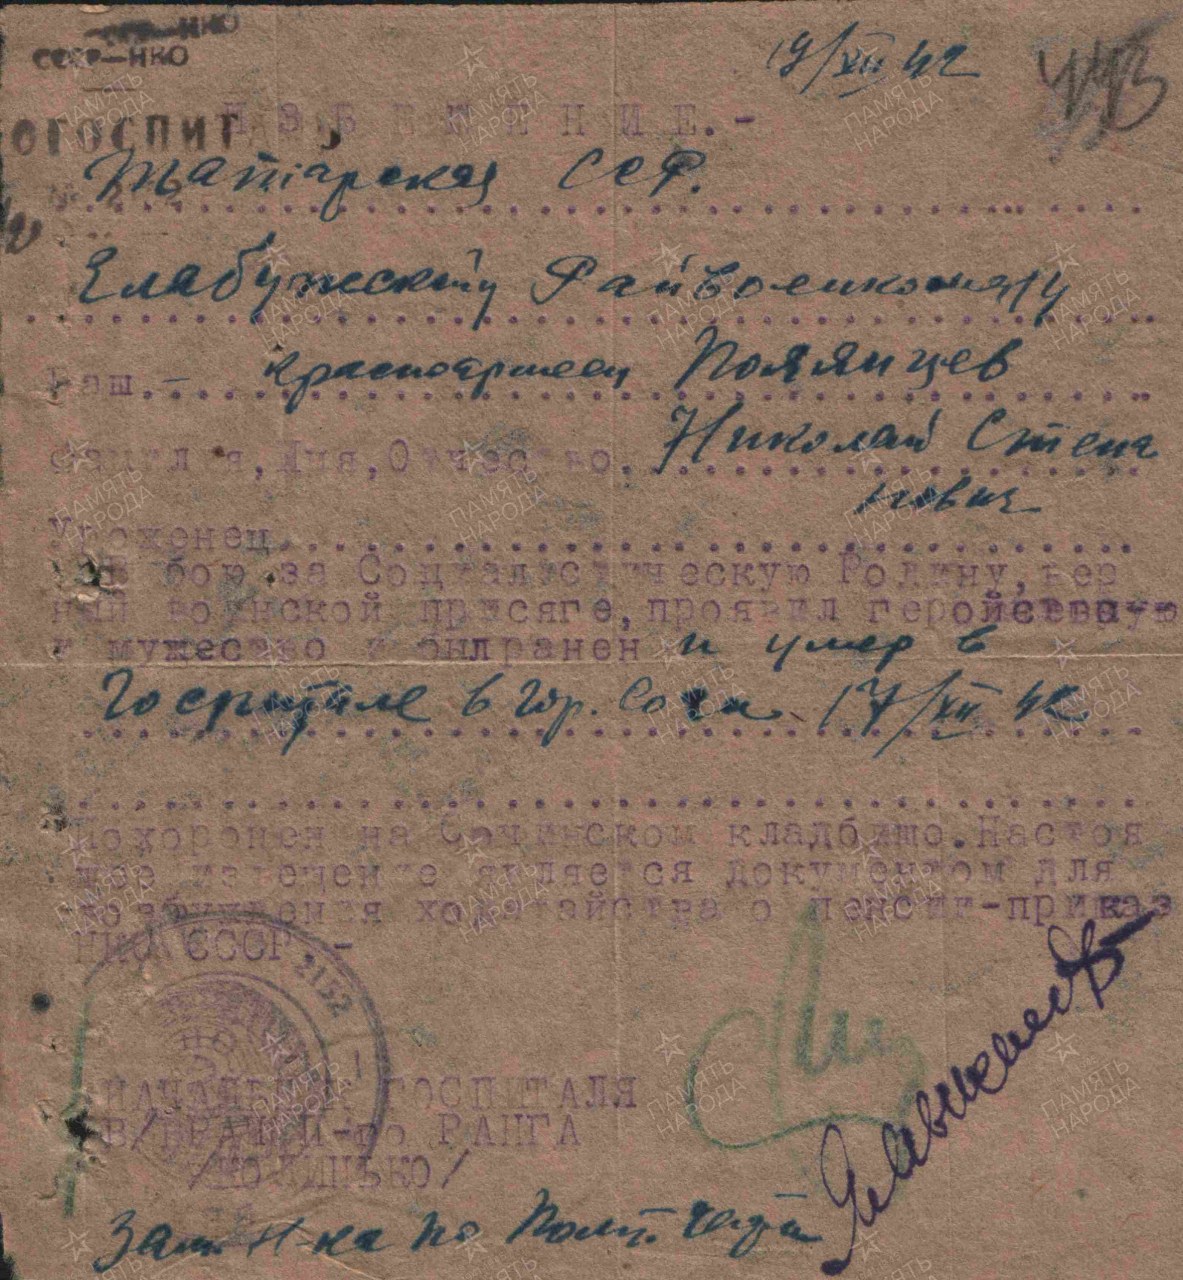 СССР-НКО
СССР-НКО
19/XII 42
443
ИЗВЕЩЕНИЕ.-
ОГОСПИТ
Татарская ССР.
Елабужскому Райвоенкомату
Ваш.- красноармеец Полянцев
Фамилия, Имя, Отчество. Николай Степа
нович
Уроженец
в бою за Социалистическую Родину, вер
ный воинской присяге, проявил геройство
и мужество и был ранен и умер в
Госпитале в гор. Сочи 17/XII 42
Похоронен на Сочинском кладбище. Настоя
щее извещение является документом для
возбуждения ходатайства о пенсии-приказ
НКО СССР -
2152
НАЧАЛЬНИК ГОСПИТАЛЯ
В/ВРАЧ II-го РАНГА
Зам Н-ка по Полит. части